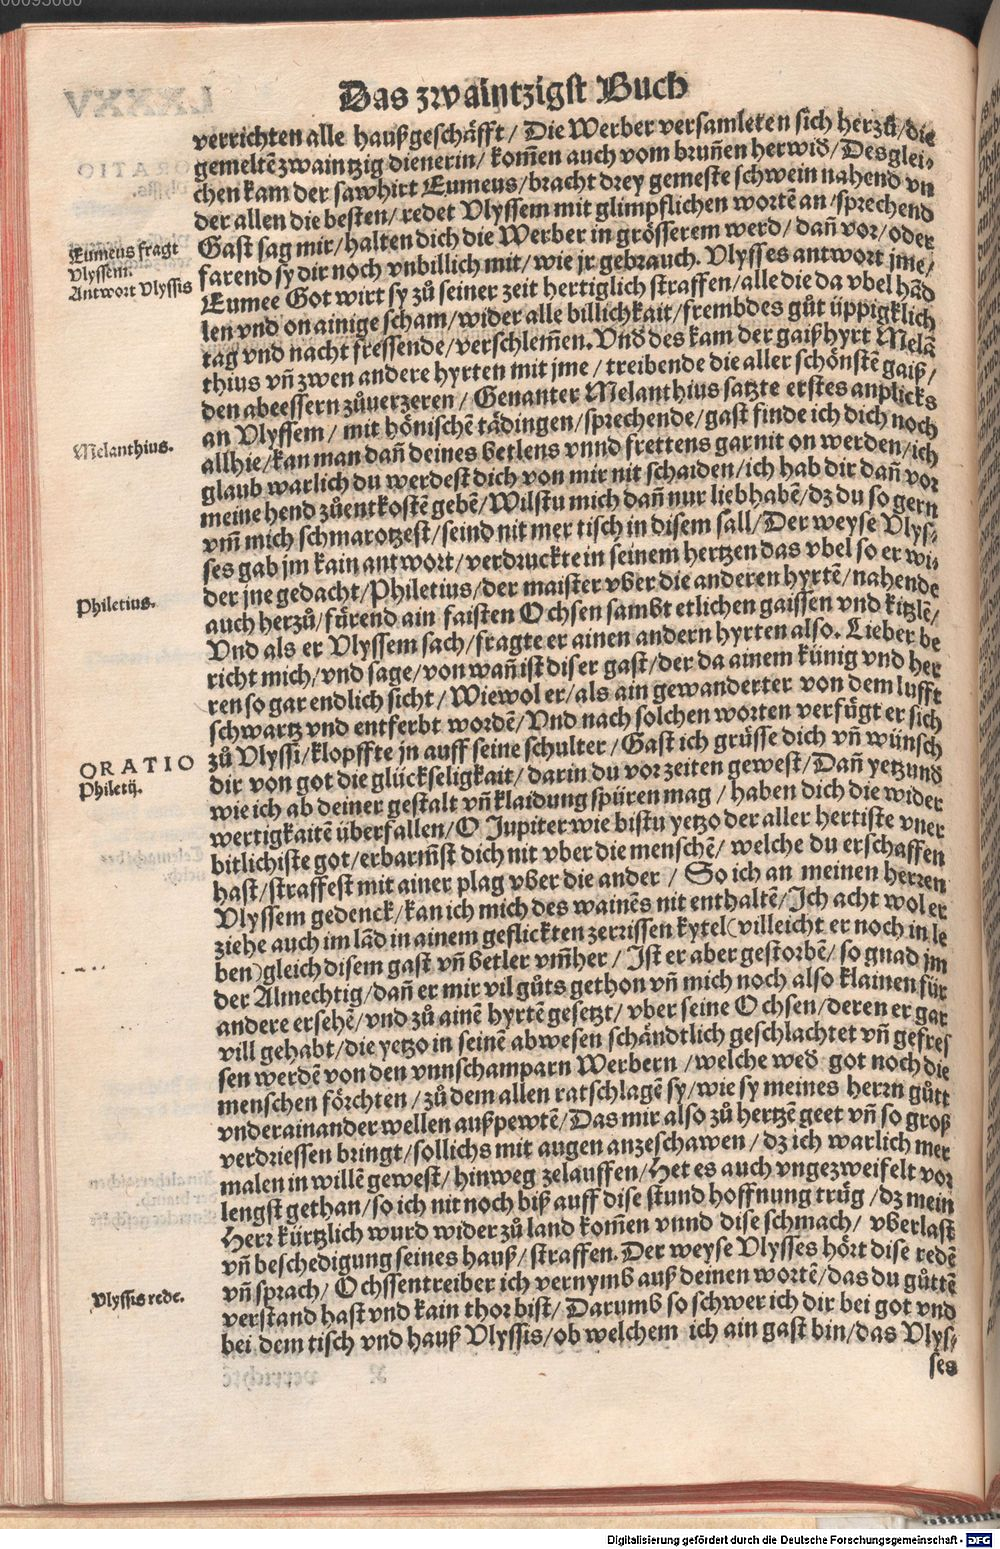 Das zwaintzigst Buch
verrichten alle haußgeschäfft / Die Werber versamleten sich herzů / die
gemeltē zwaintzig dienerin / kom̃en auch vom brun̄en herwid̄ / Desglei-
chen kam der sawhirt Eumeus / bracht drey gemeste schwein nahend vn
der allen die besten / redet Vlyssem mit glimpflichen wortē an / sprechend
Eumeus fragt
Vlyssem.
Antwort Vlyssis
Gast sag mir / halten dich die Werber in grösserem werd / dan̄ vor / oder
farend sy dir noch vnbillich mit / wie jr gebrauch. Vlysses antwort jme /
Eumee Got wirt sy zů seiner zeit hertiglich straffen / alle die da vbel hād
len vnd on ainige scham / wider alle billichkait / frembdes gůt üppigklich
tag vnd nacht fressende / verschlem̃en. Vnd̄ des kam der gaißhyrt Melā
thius vn̄ zwen andere hyrten mit jme / treibende die aller schönstē gaiß /
den abeessern zůuerzeren / Genanter Melanthius satzte erstes anplicks
an Vlyssem / mit hönischē tädingen / sprechende / gast finde ich dich noch
Melanthius.
allhie / kan man dan̄ deines betlens vnnd frettens gar nit on werden / ich
glaub warlich du werdest dich von mir nit schaiden / ich hab dir dan̄ vor
meine hend zůentkostē gebē / Wilstu mich dan̄ nur liebhabē / dz du so gern
vm̃ mich schmarotzest / seind nit mer tisch in disem sall / Der weyse Vlys-
ses gab jm kain antwort / verdruckte in seinem hertzen das vbel so er wi-
der jne gedacht / Philetius / der maister vber die anderen hyrtē / nahende
Philetius.
auch herzů / fürend ain faisten Ochsen sambt etlichen gaissen vnd kitzlē /
Vnd als er Vlyssem sach / fragte er ainen andern hyrten also. Lieber be
richt mich / vnd sage / von wan̄ ist diser gast / der da ainem künig vnd her
ren so gar endlich sicht / Wiewol er / als ain gewanderter von dem lufft
schwartz vnd entferbt wordē / Vnd nach solchen worten verfügt er sich
ORATIO
Philetij.
zů Vlyssi / klopffte jn auff seine schulter / Gast ich grüsse dich vn̄ wünsch
dir von got die glückseligkait / darin du vor zeiten gewest / Dan̄ yetzund
wie ich ab deiner gestalt vn̄ klaidung spüren mag / haben dich die wider
wertigkaitē überfallen / O Jupiter wie bistu yetzo der aller hertiste vner
bitlichiste got / erbarm̃st dich nit vber die menschē / welche du erschaffen
hast / straffest mit ainer plag vber die ander / So ich an meinen herren
Vlyssem gedenck / kan ich mich des wainēs nit enthaltē / Ich acht wol er
ziehe auch im lād in ainem geflickten zerrissen kytel (villeicht er noch in le
ben) gleich disem gast vn̄ betler vm̃her / Ist er aber gestorbē / so gnad jm
der Almechtig / dan̄ er mir vil gůts gethon vn̄ mich noch also klainen für
andere ersehē / vnd zů ainē hyrtē gesetzt / vber seine Ochsen / deren er gar
vill gehabt / die yetzo in seinē abwesen schändtlich geschlachtet vn̄ gefres
sen werdē von den vnnschamparn Werbern / welche wed̄ got noch die
menschen förchten / zů dem allen ratschlagē sy / wie sy meines herrn gůtt
vnderainander wellen außpewtē / Das mir also zů hertzē geet vn̄ so groß
verdriessen bringt / sollichs mit augen anzeschawen / dz ich warlich mer
malen in willē gewest / hinweg zelauffen / Het es auch vngezweifelt vor
lengst gethan / so ich nit noch biß auff dise stund hoffnung trüg / dz mein
Herr kürtzlich wurd wider zů land kom̃en vnnd dise schmach / vberlast
vn̄ beschedigung seines hauß / straffen. Der weyse Vlysses hört dise redē
Vlyssis rede.
vn̄ sprach / Ochssentreiber ich vernymb auß deinen wortē / das du gůttē
verstand hast vnd kain thor bist / Darumb so schwer ich dir bei got vnd
bei dem tisch vnd hauß Vlyssis / ob welchem ich ain gast bin / das Vlys-
ses
Digitalisierung gefördert durch die Deutsche Forschungsgemeinschaft - DFG